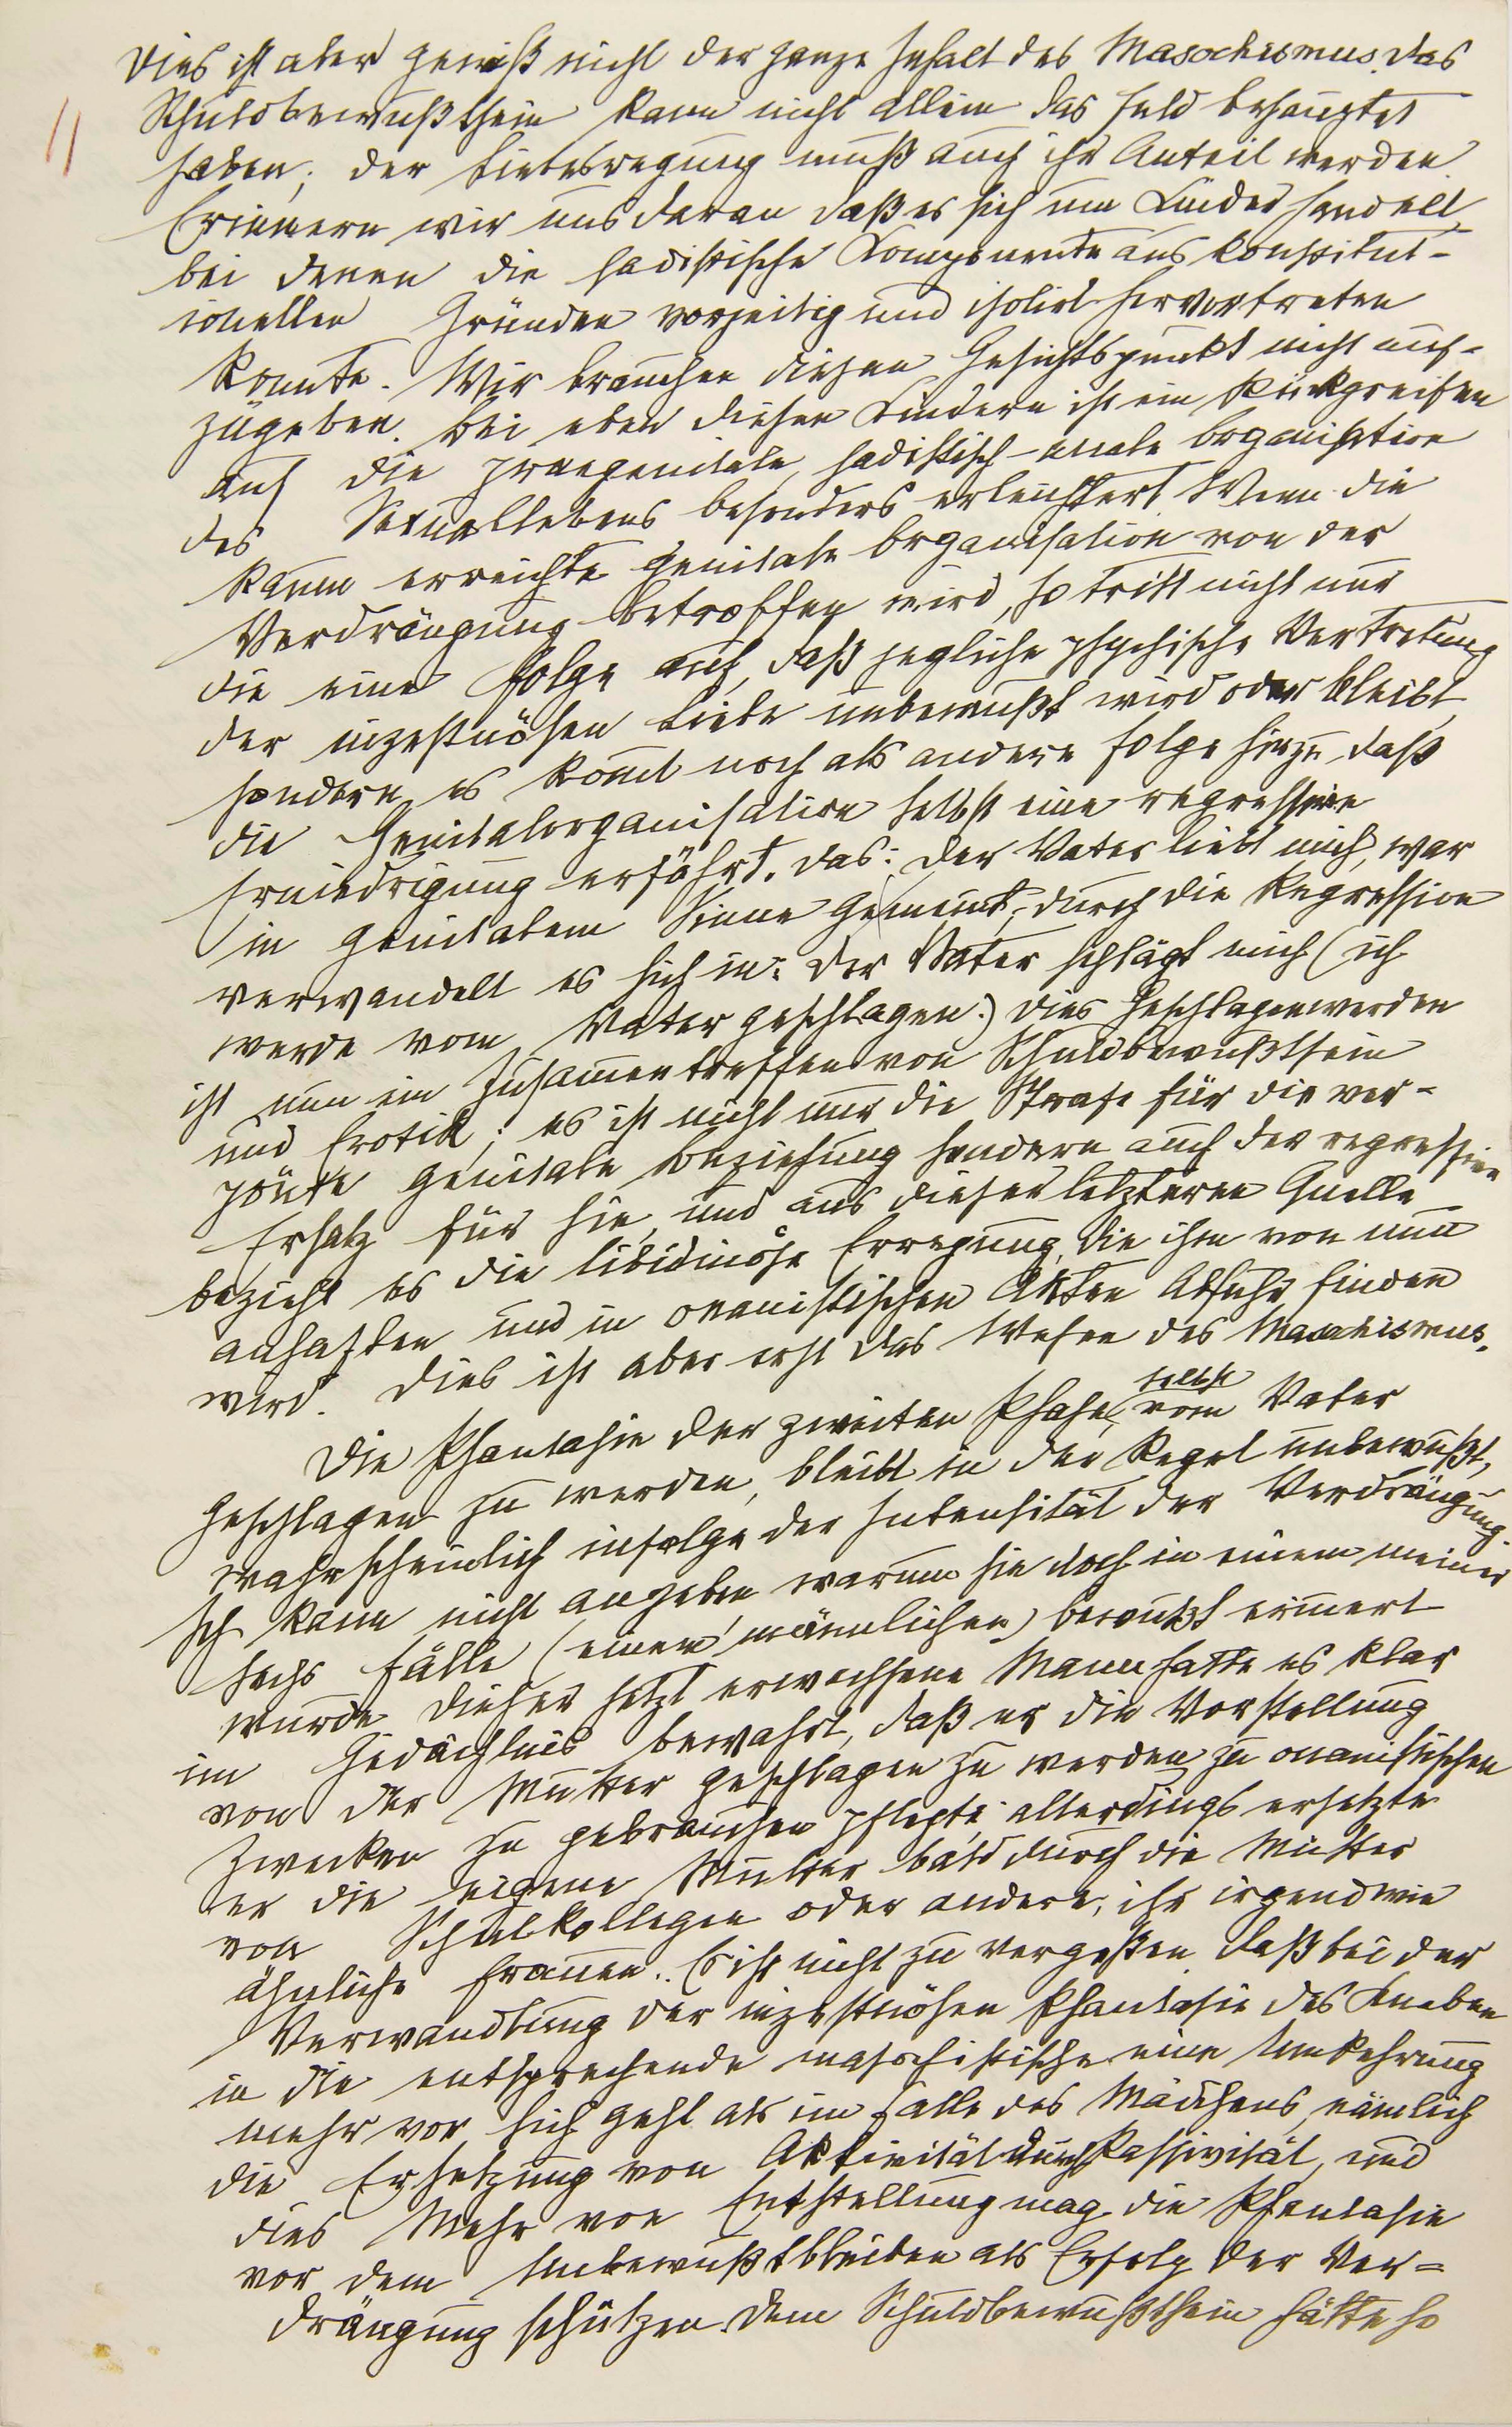 11
Dies ist aber gewiß nicht der ganze Inhalt des Masochismus. Das
Schuldbewußtsein kann nicht allein das Feld behauptet
haben; der Liebesregung muß auch ihr Anteil werden.
Erinnern wir uns daran daß es sich um Kinder handelt,
bei denen die sadistische Komponente aus konstitut-
ionellen Gründen vorzeitig und isolirt hervortreten
konnte. Wir brauchen diesen Gesichtspunkt nicht auf-
zugeben. Bei eben diesen Kindern ist ein Rückgreifen
auf die praegenitale, sadistisch-anale Organisation
des Sexuallebens besonders erleichtert. Wenn die
kaum erreichte genitale Organisation von der
Verdrängung betroffen wird, so tritt nicht nur
die eine Folge auf, daß jegliche psychische Vertretung
der inzestuösen Liebe unbewußt wird oder bleibt,
sondern es kommt noch als andere Folge hinzu, daß
die Genitalorganisation selbst eine regressive
Erniedrigung erfährt. Das: Der Vater liebt mich, war
in genitalem Sinne gemeint, durch die Regression
verwandelt es sich in: Der Vater schlägt mich (ich
werde vom Vater geschlagen.) Dies Geschlagenwerden
ist nun ein Zusammentreffen von Schuldbewußtsein
und Erotik; es ist nicht nur die Strafe für die ver-
pönte genitale Beziehung sondern auch der regressive
Ersatz für sie, und aus dieser letzteren Quelle
bezieht es die libidinöse Erregung, die ihm von nun
anhaften und in onanistischen Akten Abfuhr finden
wird. Dies ist aber erst das Wesen des Masochismus.
Die Phantasie der zweiten Phase, selbst vom Vater
geschlagen zu werden, bleibt in der Regel unbewußt,
wahrscheinlich infolge der Intensität der Verdrängung.
Ich kann nicht angeben warum sie doch in einem meiner
sechs Fälle (einem männlichen) bewußt erinnert
wurde. Dieser jetzt erwachsene Mann hatte es klar
im Gedächtnis bewahrt, daß er die Vorstellung
von der Mutter geschlagen zu werden zu onanistischen
Zwecken zu gebrauchen pflegte; allerdings ersetzte
er die eigene Mutter bald durch die Mutter
von Schulkollegen oder andere, ihr irgendwie
ähnliche Frauen. Es ist nicht zu vergeßen daß bei der
Verwandlung der inzestuösen Phantasie des Knaben
in die entsprechende masochistische eine Umkehrung
mehr vor sich geht als im Falle des Mädchens, nämlich
die Ersetzung von Aktivität durch Passivität, und
dies Mehr von Entstellung mag die Phantasie
vor dem Unbewußtbleiben als Erfolg der Ver-
drängung schützen. Dem Schuldbewußtsein hätte so